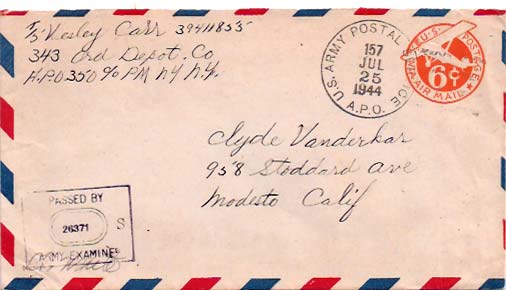 T/5 Wesley Carr 39411855
343 Ord Depot. Co
A.P.O 350 % PM NY N.Y.
U.S. ARMY POSTAL SERVICE
157
JUL
25
1944
A.P.O.
U.S. POSTAGE
VIA AIR MAIL
6¢
Clyde Vanderkar
958 Stoddard Ave
Modesto Calif
PASSED BY
26371 S
ARMY EXAMINER